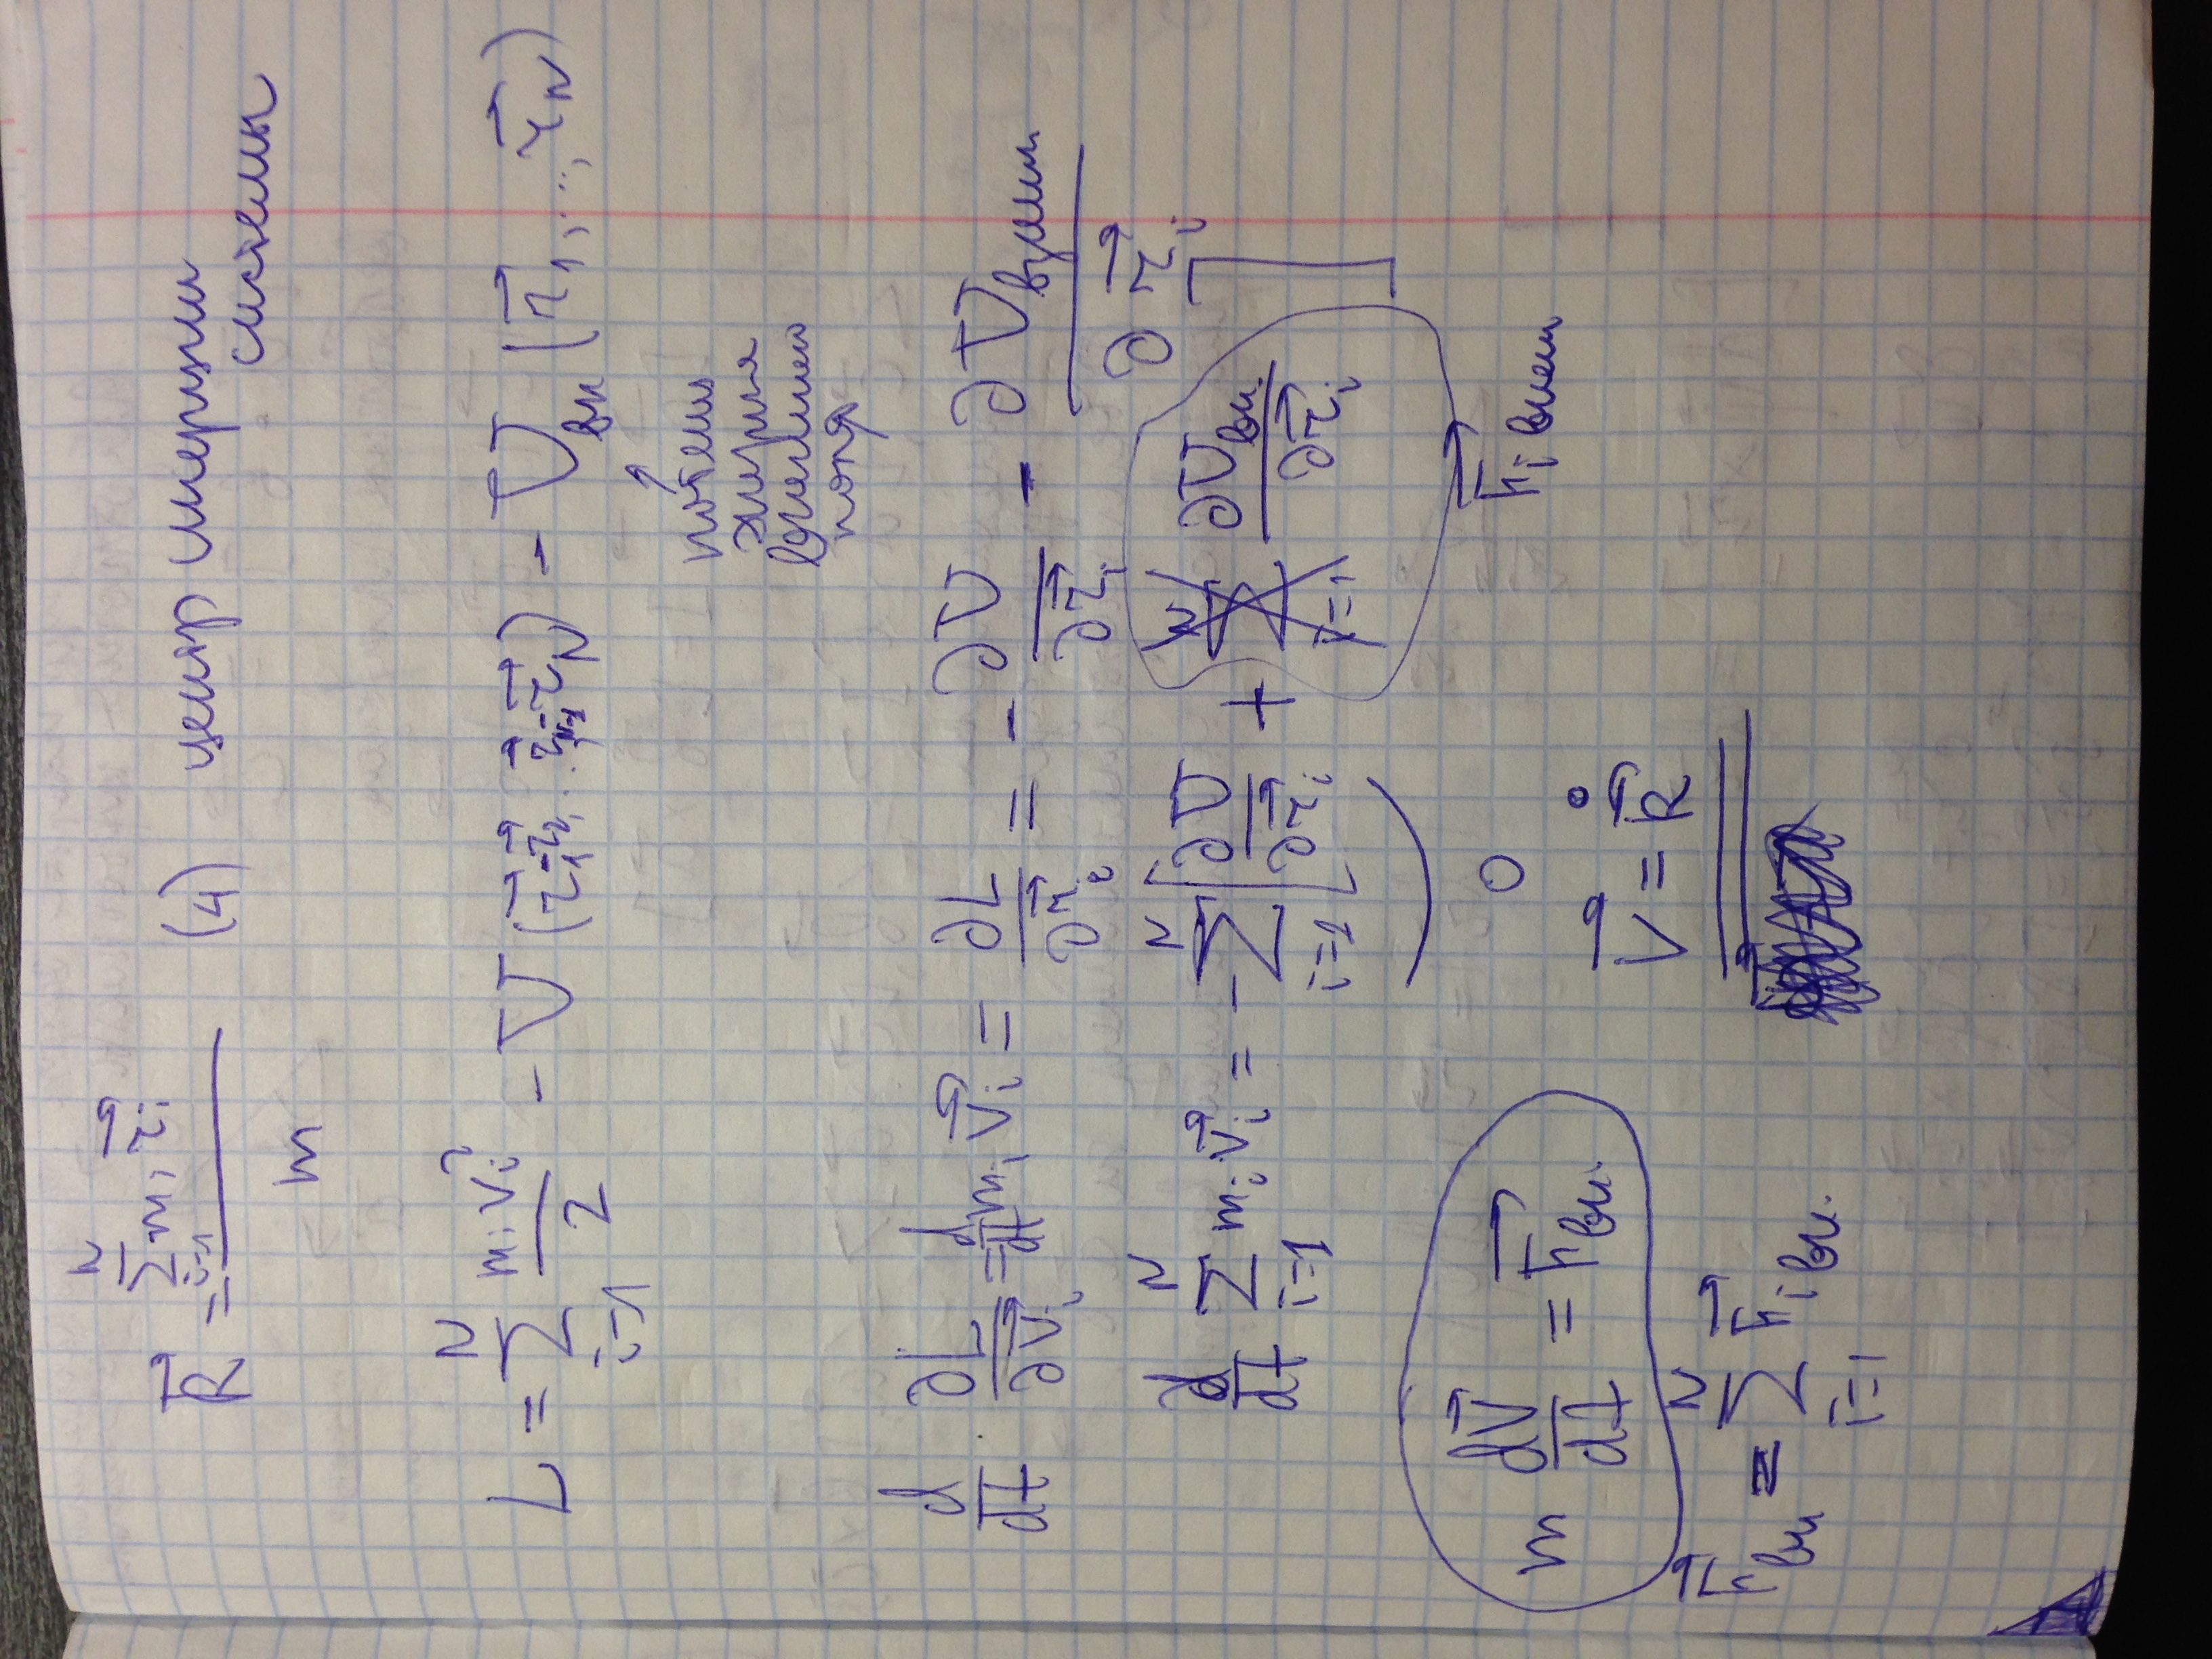 R⃗ = \frac{\sum_{i=1}^{N} m_i r⃗_i}{m} (4) центр инерции системы
L = \sum_{i=1}^{N} \frac{m_i v_i^2}{2} - U(r⃗_1 - r⃗_2, ... r⃗_{N-1} - r⃗_N) - U_{вн}(r⃗_1, ..., r⃗_N)
↑
потенц
энергия
внешнего
поля
\frac{d}{dt} \frac{∂L}{∂v⃗_i} = \frac{d}{dt} m_i v⃗_i = \frac{∂L}{∂r⃗_i} = - \frac{∂U}{∂r⃗_i} - \frac{∂U_{внешн}}{∂r⃗_i}
\frac{d}{dt} \sum_{i=1}^{N} m_i v⃗_i = - \sum_{i=1}^{N} [ \frac{∂U}{∂r⃗_i} + \frac{∂U_{вн.}}{∂r⃗_i} ]
0
F⃗_{i внеш}
m \frac{dV⃗}{dt} = F⃗_{вн.} V⃗ = \dot{R⃗}
F⃗_{вн} = \sum_{i=1}^{N} F⃗_{i вн.}